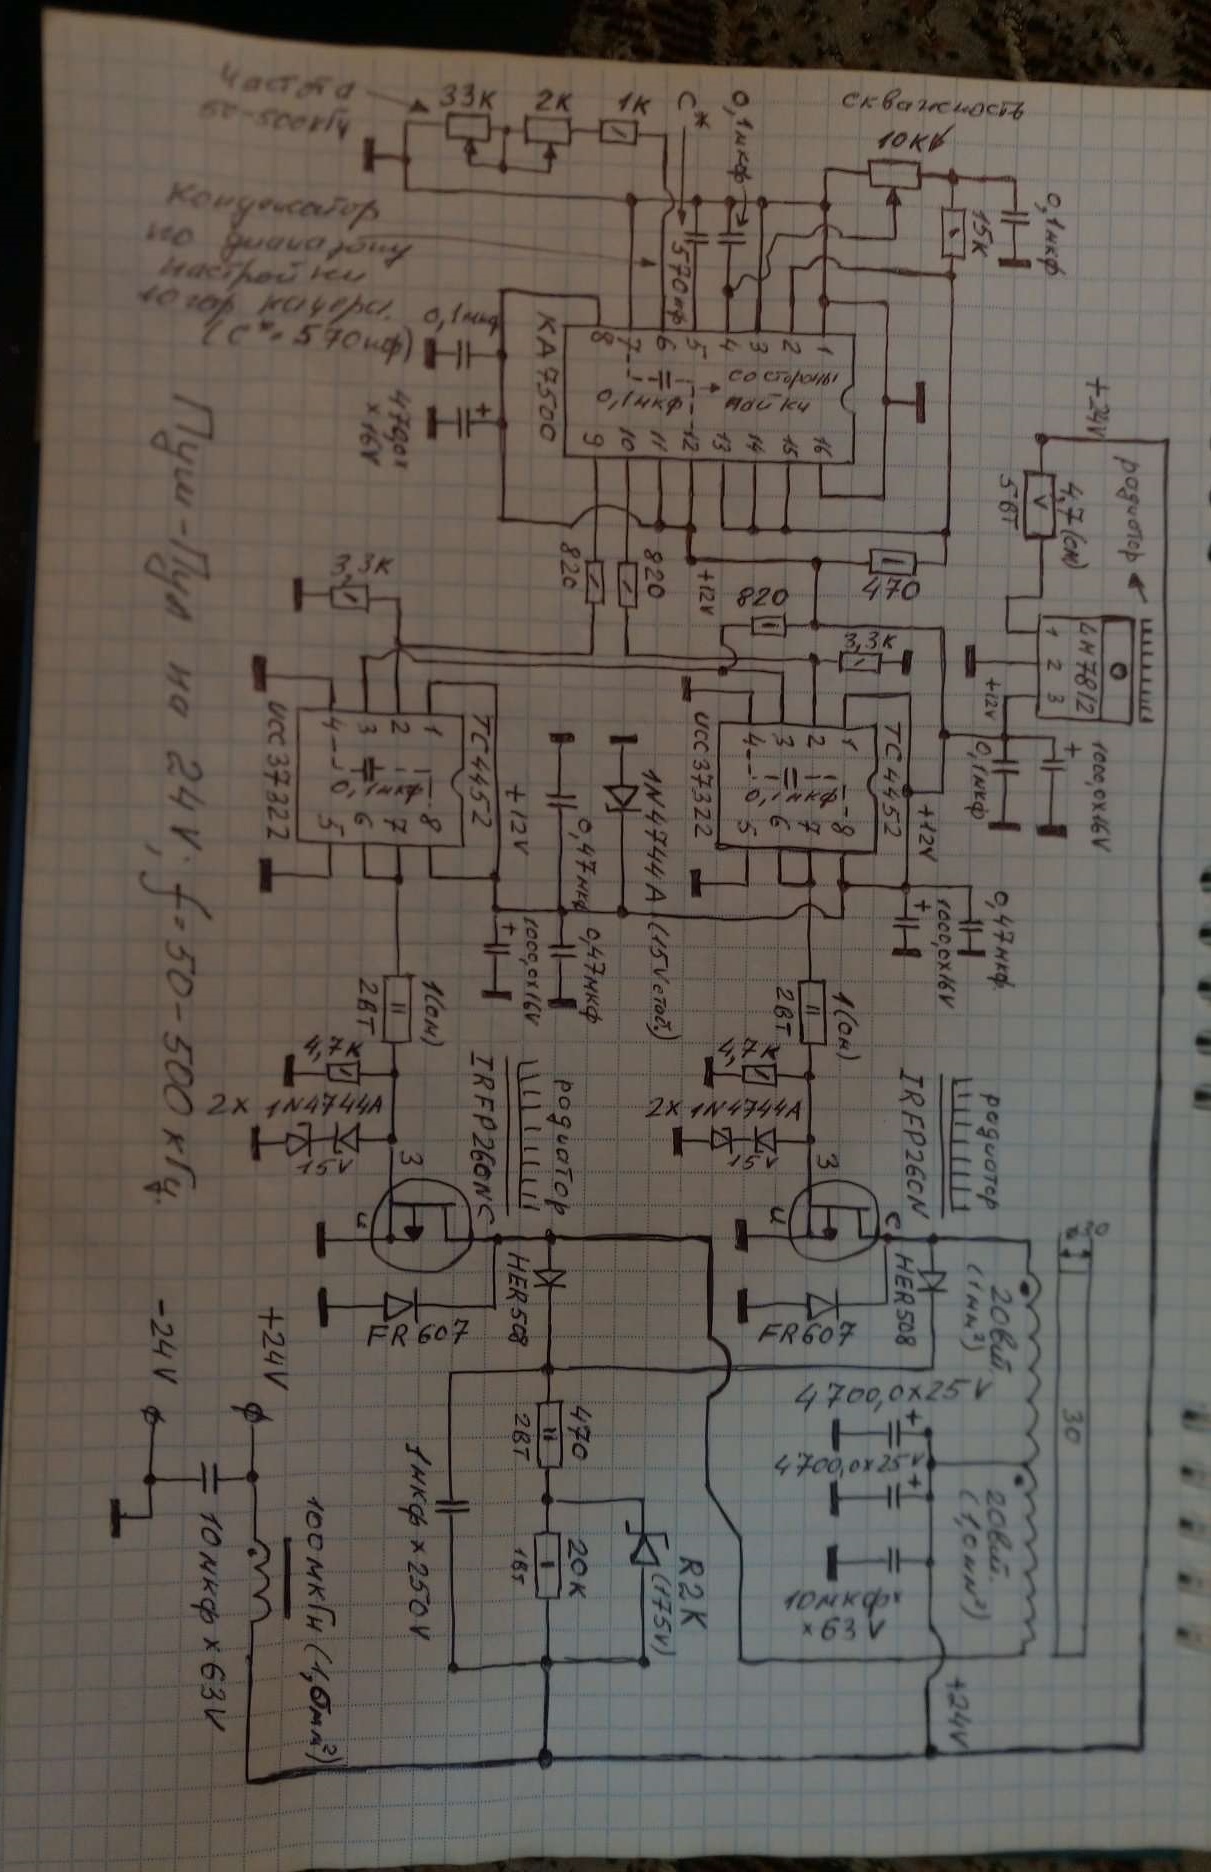 Частота
50-500кГц
33к
2к
1к
С*
0,1мкф
скважность
10к
15к
0,1мкф
Конденсатор
по диапазону
настройки
10гор качеры.
(С*=570пф)
570пф
0,1мкф
470,0х
х16V
KA7500
8 7 6 5 4 3 2 1
0,1мкф
со стороны
пайки
9 10 11 12 13 14 15 16
+24V
4,7(ом)
5Вт
радиатор
LM7812
1 2 3
+12V
0,1мкф
1000,0х16V
820
820
+12V
820
470
3,3к
3,3к
TC4452
1 2 3 4
0,1мкф
8 7 6 5
UCC37322
+12V
TC4452
1 2 3 4
0,1мкф
8 7 6 5
UCC37322
+12V
0,47мкф
1N4744A (15V стаб.)
1000,0х16V
0,47мкф
1000,0х16V
0,47мкф
1(ом)
2Вт
1(ом)
2Вт
4,7к
2х 1N4744A
15V
4,7к
2х 1N4744A
15V
IRFP260N
радиатор
IRFP260N
радиатор
З
и
с
З
и
с
HER508
FR607
HER508
FR607
20вит.
(1мм²)
20вит.
(1,0мм²)
20
30
4700,0х25V
4700,0х25V
10мкф
х63V
+24V
470
2Вт
20к
1Вт
R2K
(175V)
1мкф х 250V
+24V
-24V
10мкф х 63V
100мкГн (1,6мм²)
Пуш-Пул на 24V, f=50-500кГц.